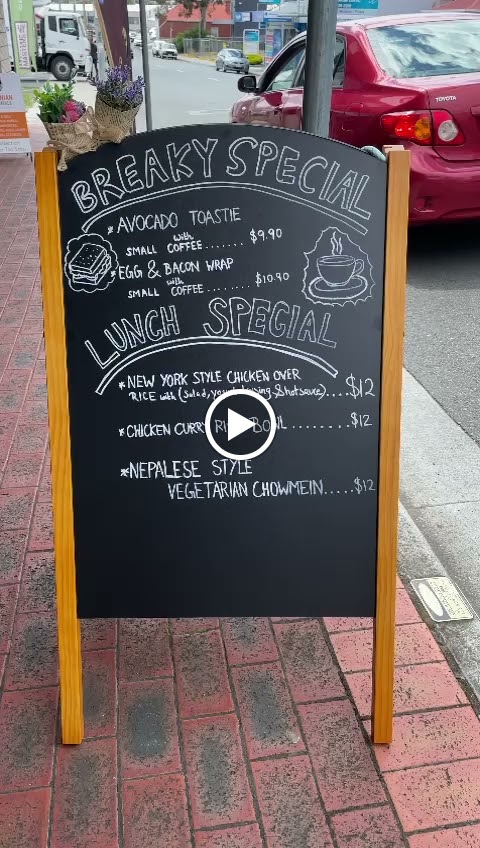 BREAKY SPECIAL
*AVOCADO TOASTIE
with
SMALL COFFEE....... $9.90
*EGG & BACON WRAP
with
SMALL COFFEE........ $10.90
LUNCH SPECIAL
*NEW YORK STYLE CHICKEN OVER
RICE with (Salad, &hotsauce)....$12
*CHICKEN CURRY BOWL.........$12
*NEPALESE STYLE
VEGETARIAN CHOWMEIN.....$12
TOYOTA